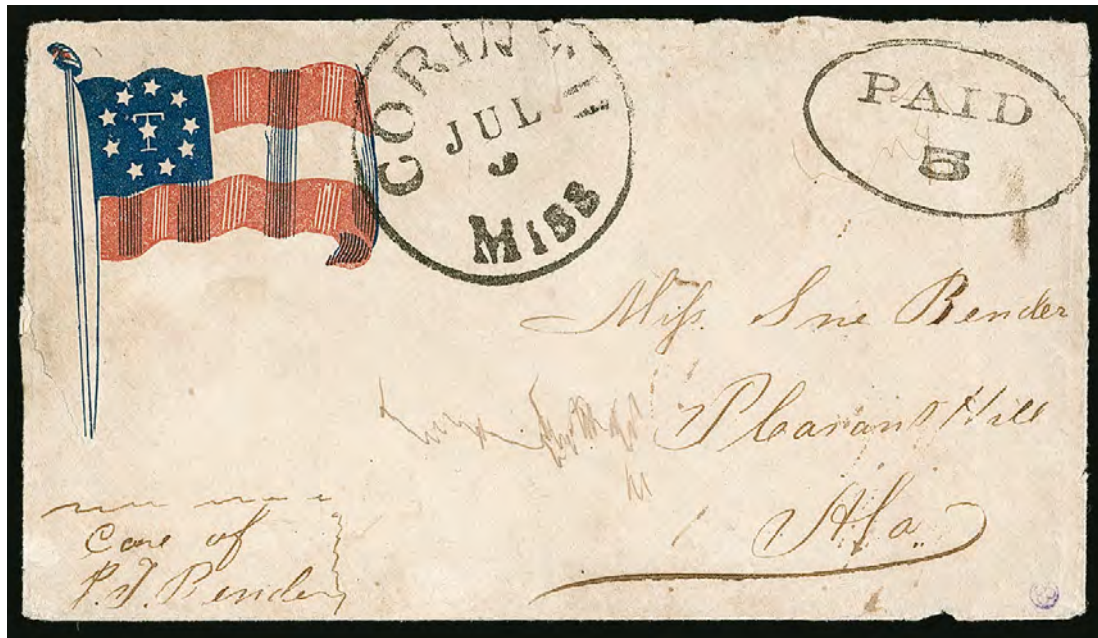 T
CORINTH
JUL
Miss
PAID
5
Miss. Sue Bender
Pleasant Hill
Ala.
Care of
P. T. Bender